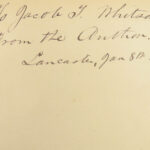 To Jacob T. Whitson
From the Author.
Lancaster, Jan 8th